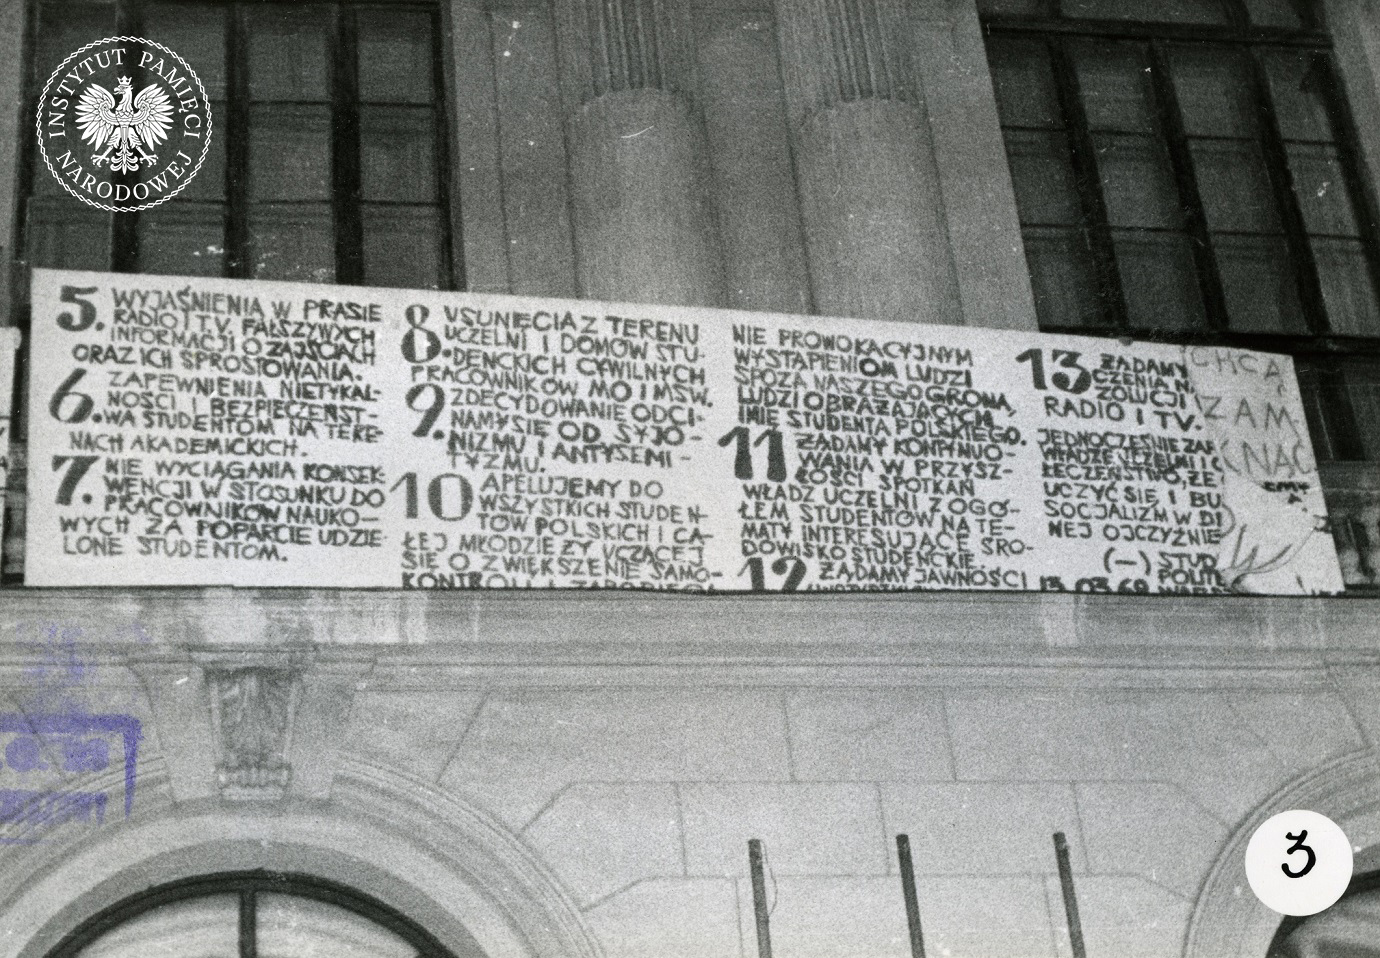 INSTYTUT PAMIĘCI
NARODOWEJ
5. WYJAŚNIENIA W PRASIE
RADIO I T.V. FAŁSZYWYCH
INFORMACJI O ZAJŚCIACH
ORAZ ICH SPROSTOWANIA.
6. ZAPEWNIENIA NIETYKAL-
NOŚCI I BEZPIECZEŃST-
WA STUDENTOM NA TERE-
NACH AKADEMICKICH.
7. NIE WYCIĄGANIA KONSEK-
WENCJI W STOSUNKU DO
PRACOWNIKÓW NAUKO-
WYCH ZA POPARCIE UDZIE-
LONE STUDENTOM.
8. USUNIĘCIA Z TERENU
UCZELNI I DOMÓW STU-
DENCKICH CYWILNYCH
PRACOWNIKÓW MO I MSW.
9. ZDECYDOWANIE ODCI-
NAMY SIĘ OD SYJO-
NIZMU I ANTYSEMI-
TYZMU.
10 APELUJEMY DO
WSZYSTKICH STUDEN-
TÓW POLSKICH I CA-
ŁEJ MŁODZIEŻY UCZĄCEJ
SIĘ O ZWIĘKSZENIE SAMO-
KONTROLI
NIE PROWOKACYJNYM
WYSTĄPIENIOM LUDZI
SPOZA NASZEGO GRONA,
LUDZI OBRAŻAJĄCYCH
IMIĘ STUDENTA POLSKIEGO.
11 ŻĄDAMY KONTYNUO-
WANIA W PRZYSZ-
ŁOŚCI SPOTKAŃ
WŁADZ UCZELNI Z OGÓ-
ŁEM STUDENTÓW NA TE-
MATY INTERESUJĄCE ŚRO-
DOWISKO STUDENCKIE.
12 ŻĄDAMY JAWNOŚCI
13 ŻĄDAMY
CZENIA N
ZOLUCJI
RADIO I TV.
JEDNOCZEŚNIE ZAP
WŁADZE UCZELNI I
ŁECZEŃSTWO, ŻE
UCZYĆ SIĘ I BU
SOCJALIZM W
NEJ OJCZYŹNIE
(—) STUD
POLITE
13.03.68
3